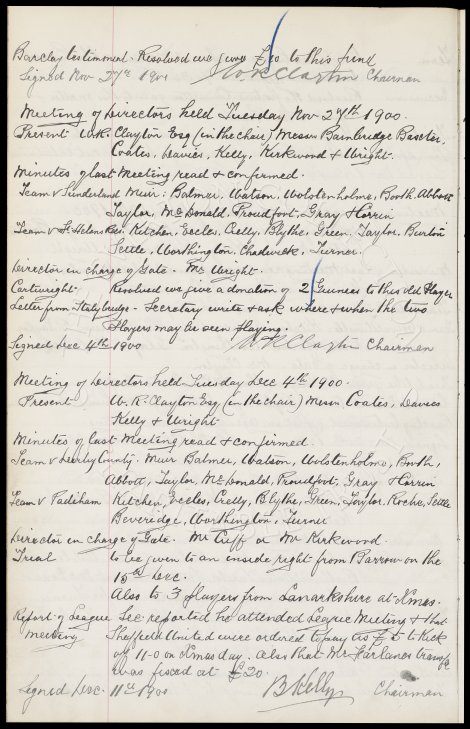 Barclay testimonial. Resolved we give £20 to this fund
Signed Nov 27th 1900 W.R. Clayton Chairman
Meeting of Directors held Tuesday Nov 27th 1900.
Present W.R. Clayton Esq (in the chair) Messrs Bainbridge Baxter,
Coates, Davies, Kelly, Kirkwood & Wright.
Minutes of last Meeting read & confirmed.
Team v Sunderland Muir: Balmer, Watson, Wolstenholme, Booth, Abbott
Taylor, McDonald, Proudfoot, Gray & Horrin
Team v St Helens Rec. Kitchen, Eccles, Crelly, Blythe, Green, Taylor, Burton
Settle, Worthington, Chadwick, Turner.
Director in charge of Gate - Mr Wright.
Cartwright. Resolved we give a donation of 2 Guineas to this old Player
Letter from Stalybridge - Secretary write & ask where & when the two
Players may be seen playing.
Signed Dec 4th 1900 W.R. Clayton Chairman
Meeting of Directors held Tuesday Dec 4th 1900.
Present W.R. Clayton Esq (in the chair) Messrs Coates, Davies
Kelly & Wright
Minutes of last Meeting read & confirmed.
Team v Derby County. Muir Balmer, Watson, Wolstenholme, Booth,
Abbott, Taylor, McDonald, Proudfoot, Gray & Horrin
Team v Padiham Kitchen, Eccles, Crelly, Blythe, Green, Taylor, Roche, Settle
Beveridge, Worthington, Turner
Director in charge of Gate. Mr Cuff or Mr Kirkwood.
Trial to be given to an inside right from Barrow on the
15th Dec.
Also to 3 players from Lanarkshire at Xmas.
Report of League Sec reported he attended League Meeting & that
Meeting Sheffield United were ordered to pay us £5 to kick
off 11-0 on Xmas day. Also that McFarlanes transfer
was fixed at £20.
Signed Dec. 11th 1900 B Kelly Chairman